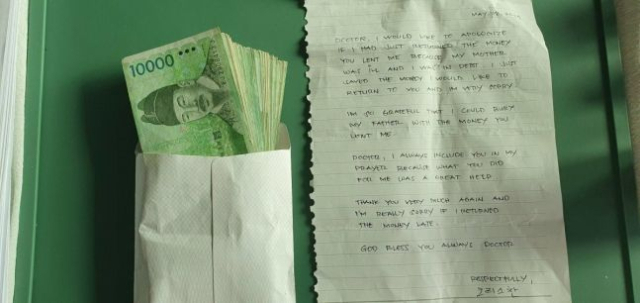 10000
DOCTOR, I WOULD LIKE TO APOLOGIZE
IF I HAD JUST RETURNED THE MONEY
YOU LENT ME BECAUSE MY MOTHER
WAS ILL AND I WAS IN DEBT. I JUST
SAVED THE MONEY I WOULD LIKE TO
RETURN TO YOU AND IM VERY SORRY.
IM SO GRATEFUL THAT I COULD BURY
MY FATHER WITH THE MONEY YOU
LENT ME.
DOCTOR, I ALWAYS INCLUDE YOU IN MY
PRAYER BECAUSE WHAT YOU DID
FOR ME WAS A GREAT HELP.
THANK YOU VERY MUCH AGAIN AND
I'M REALLY SORRY IF I RETURNED
THE MONEY LATE.
GOD BLESS YOU ALWAYS DOCTOR.
RESPECTFULLY,